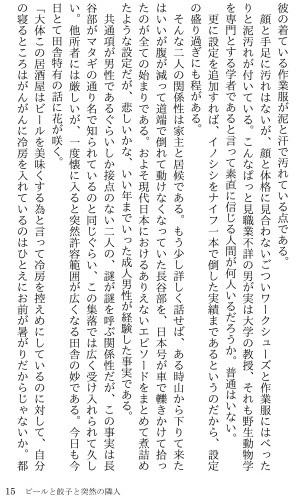 彼の着ている作業服が泥と汗で汚れている点である。
　顔と手足に汚れはないが、顔と体格に見合わないごついワークシューズと作業服にはべった
りと泥汚れが付いている。こんなぱっと見職業不詳の男が実は大学の教授、それも野生動物学
を専門とする学者であると言って素直に信じる人間が何人いるだろうか。普通はいない。
　更に設定を追加すれば、イノシシをナイフ一本で倒した実績まであるというのだから、設定
の盛り過ぎにも程がある。
　そんな二人の関係性は家主と居候である。もう少し詳しく話せば、ある時山から下りて来た
はいいが腹が減って道端で倒れて動けなくなっていた長谷部を、日本号が車で轢きかけて拾っ
たのが全ての始まりである。およそ現代日本におけるありえないエピソードをまとめて煮詰め
たような設定だが、悲しいかな、いい年までいった成人男性が経験した事実である。
　共通項が男性であるぐらいしか接点のない二人の、謎が謎を呼ぶ関係性だが、この事実は長
谷部がマタギの通り名で知られているのと同じぐらい、この集落では広く受け入れられて久し
い。他所者には厳しいが、一度懐に入ると突然許容範囲が広くなる田舎の妙である。今日も今
日とて田舎特有の話に花が咲く。
「大体この居酒屋はビールを美味くする為と言って冷房を控えめにしているのに対して、自分
の寝るところはがんがんに冷房を入れているのはひとえにお前が暑がりだからじゃないか。都
15　ビールと餃子と突然の隣人